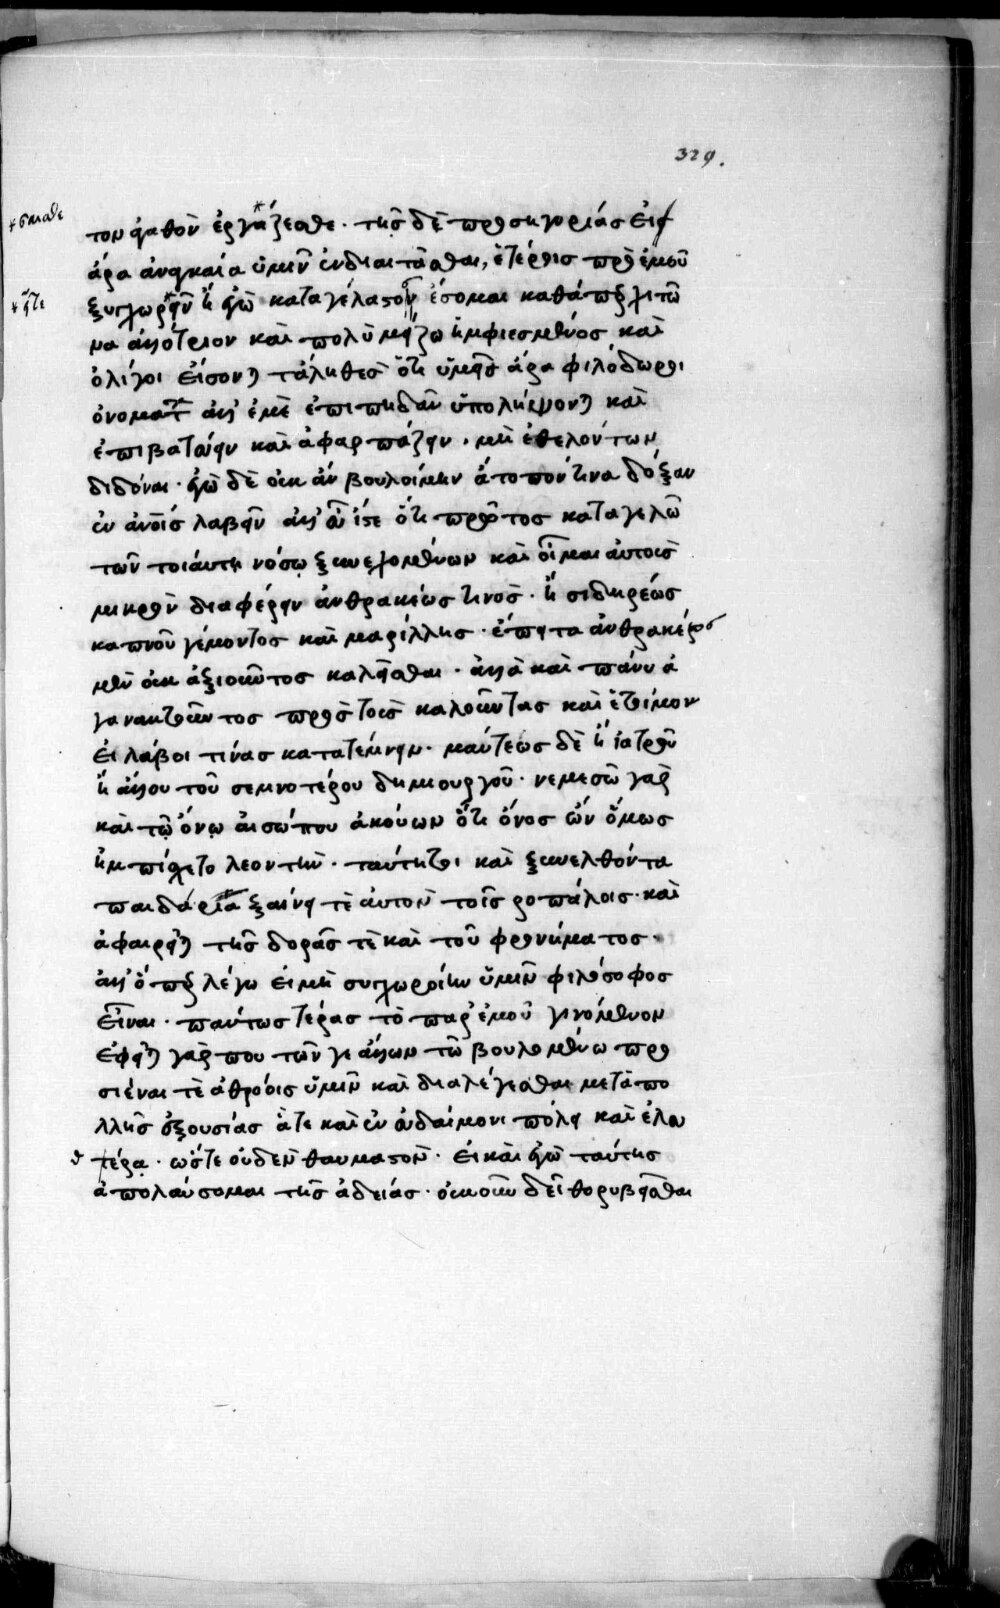 329.
σμαθε
τον ἀγαθὸν ἐργάζεσθε. τῆς δὲ προσηγορίας εἰ
ἄρα ἀναγκαία ὑμῖν ἐνδιαιτᾶσθαι, ἑτέροις πρὸ ἐμοῦ
ᾔτε
ξυγχωρεῖν ἢ ἐγὼ καταγέλαστον ἔσομαι καθάπερ χιτῶ
να ἀλλότριον καὶ πολὺ μείζω ἠμφιεσμένος καὶ
ὀλίγοι εἴσονται τἀληθὲς ὅτι ὑμεῖς ἄρα φιλόδωροι
ὀνομάτ ἀλλ' ἐμὲ ἐπιπηδᾶν ὑπολήψονται καὶ
ἐπιβατεύειν καὶ ἀφαρπάζειν. μὴ ἐθελόντων
διδόναι. ἐγὼ δὲ οὐκ ἂν βουλοίμην ἄτοπόν τινα δόξαν
ἐν ἀνοις λαβεῖν ἀλλ' εὖ ἴστε ὅτι πρῶτος καταγελῶ
τῶν τοιαύτῃ νόσῳ ξυνεχομένων καὶ οἶμαι αὐτοὺς
μικρὸν διαφέρειν ἀνθρακέως τινὸς. ἢ σιδηρέως
καπνοῦ γέμοντος καὶ μαρίλλης. ἔπειτα ἀνθρακέως
μὲν οὐκ ἀξιοῦντος καλεῖσθαι. ἀλλὰ καὶ πάνυ ἀ
γανακτοῦντος πρὸς τοὺς καλοῦντας καὶ ἑτοίμου
εἰ λάβοι τινὰς κατατέμνειν. μάντεως δὲ ἢ ἰατροῦ
ἢ ἄλλου του σεμνοτέρου δημιουργοῦ. νεμεσῶ γὰρ
καὶ τῷ ὄνῳ αἰσώπου ἀκούων ὅτι ὄνος ὢν ὅμως
ἠμπίσχετο λεοντῆν. ταύτῃτοι καὶ ξυνελθόντα
παιδάρια ξαίνει τὲ αὐτὸν τοῖς ροπάλοις. καὶ
ἀφαιρεῖται τῆς δορᾶς τὲ καὶ τοῦ φρονήματος.
ἀλλ' ὅπερ λέγω εἰ μὴ συγχωροίην ὑμῖν φιλόσοφος
εἶναι. πάντως τέρας τὸ παρ' ἐμοῦ γινόμενον
ἐφεῖται γάρ που τῶν γε ἄλλων τῶ βουλομένω προ
σιέναι τὲ ἀθρόοις ὑμῖν καὶ διαλέγεσθαι μετὰ πο
λλῆς ἐξουσίας ἅτε καὶ ἐν εὐδαίμονι πόλει καὶ ἐλευ
θ τέρᾳ. ὥστε οὐδὲν θαυμαστὸν. εἰ καὶ ἐγὼ ταύτης
ἀπολαύσομαι τῆς ἀδείας. οὐκοῦν δεῖ θορυβεῖσθαι